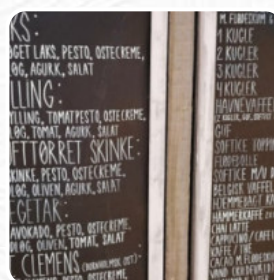 KS:
GET LAKS, PESTO, OSTECREME,
LØG, AGURK, SALAT
LLING:
YLLING, TOMATPESTO, OSTECREME,
LØG, TOMAT, AGURK, SALAT
FTTØRRET SKINKE:
SKINKE, PESTO, OSTECREME,
LØG, OLIVEN, AGURK, SALAT
EGETAR:
AVOKADO, PESTO, OSTECREME,
LØG, OLIVEN, TOMAT, SALAT
CLEMENS
PESTO, OSTECREME,
M. FLØDESKUM
1 KUGLE
2 KUGLER
3 KUGLER
4 KUGLER
HAVNEVAFFE
GUF
SOFTICE TOPPIN
FLØDEBOLLE
SOFTICE M/U D
BELGISK VAFFEL
HJEMMEBAGT KA
HAMMERKAFFE
CHAI LATTE
CAPPUCINO/CAFE
KAFFE
CACAO M. FLØDESKUM